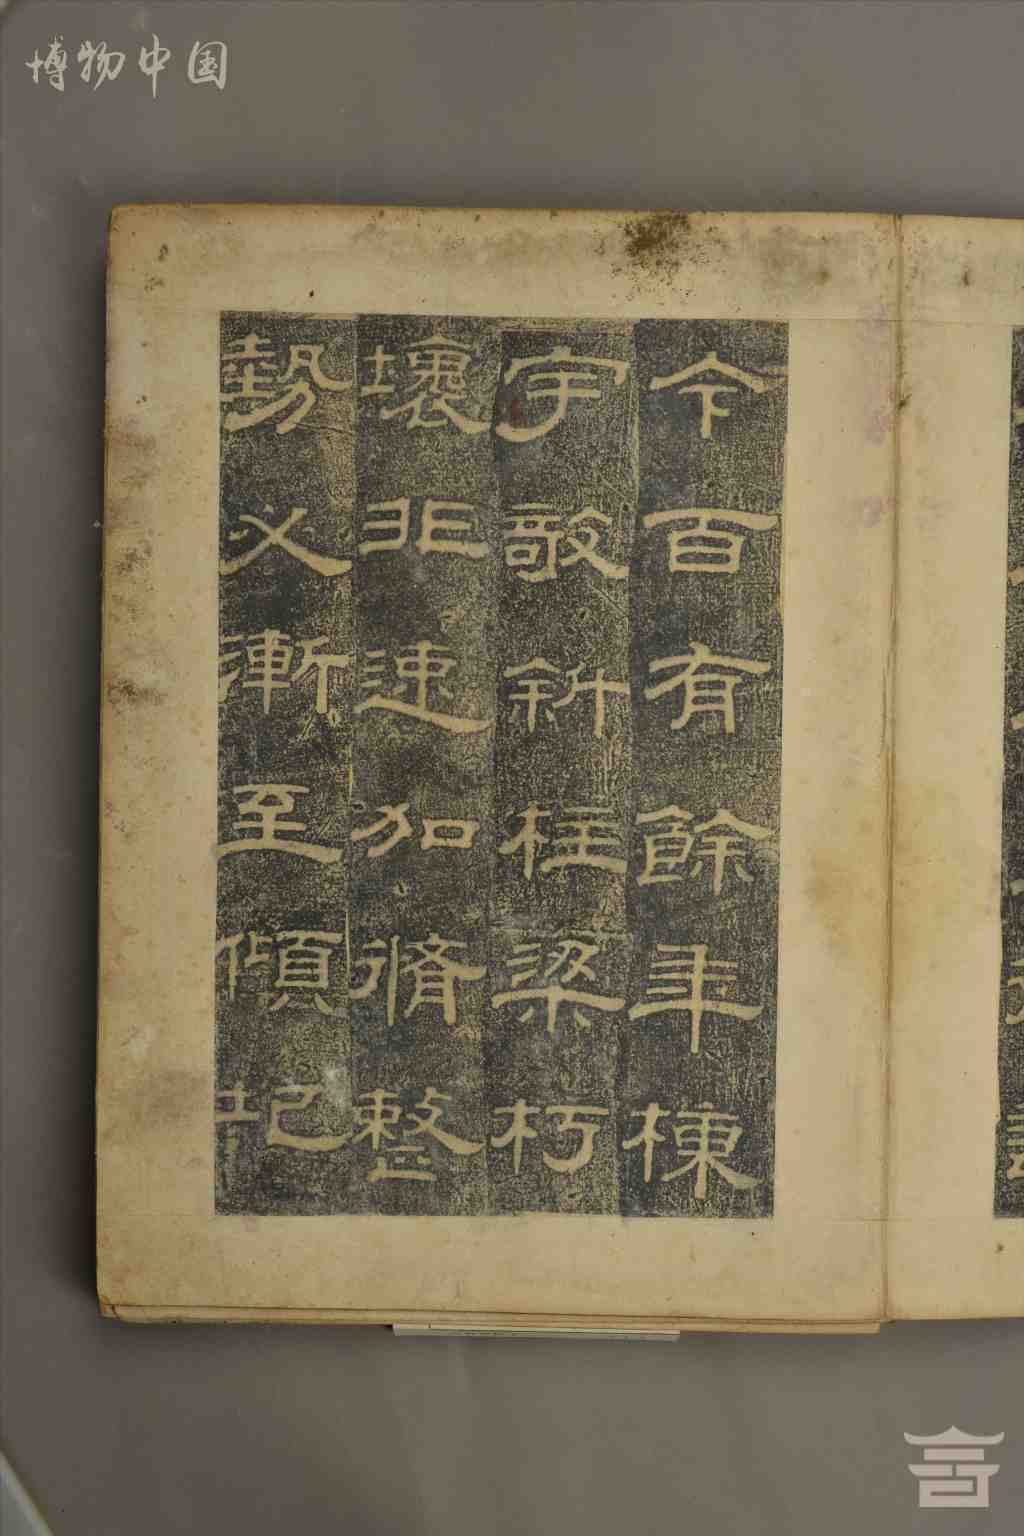 博物中国
今百有餘年棟
宇敧斜柱梁朽
壞非速加脩整
勢必漸至傾圮